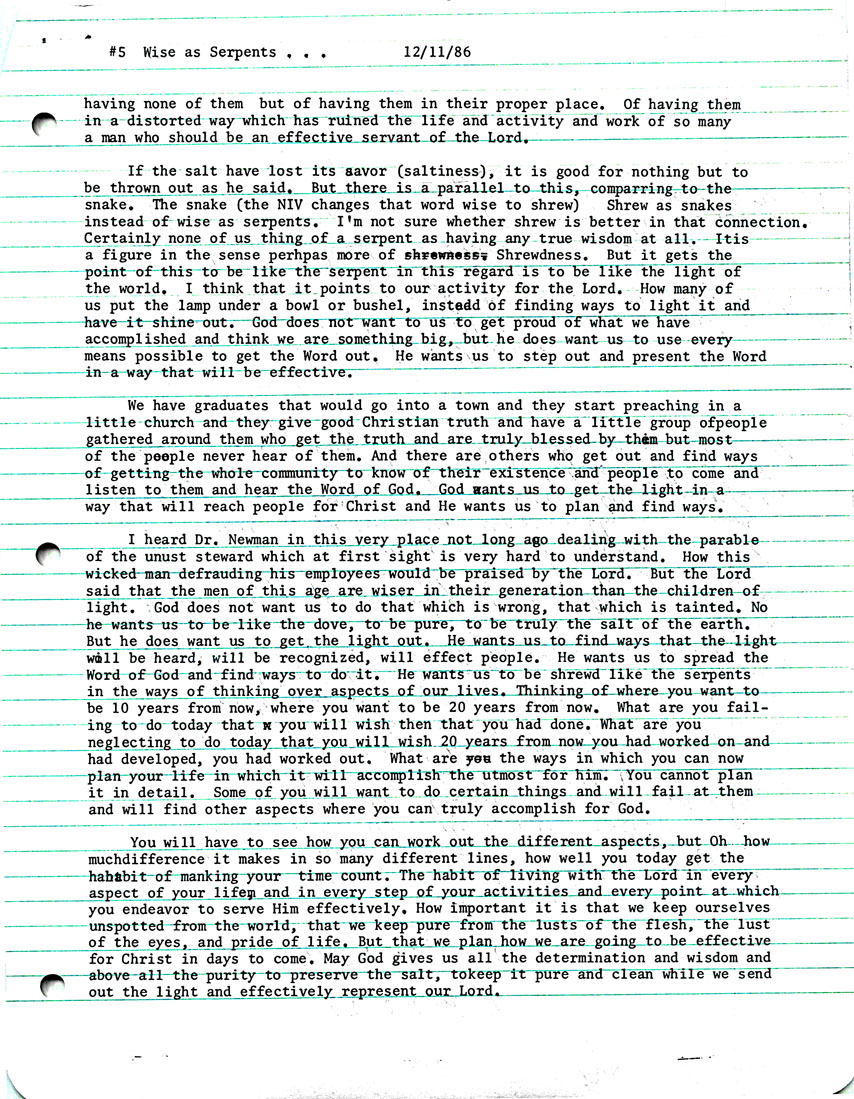 #5 Wise as Serpents . . . 12/11/86
having none of them but of having them in their proper place. Of having them
in a distorted way which has ruined the life and activity and work of so many
a man who should be an effective servant of the Lord.
If the salt have lost its savor (saltiness), it is good for nothing but to
be thrown out as he said. But there is a parallel to this, comparring to the
snake. The snake (the NIV changes that word wise to shrew) Shrew as snakes
instead of wise as serpents. I'm not sure whether shrew is better in that connection.
Certainly none of us thing of a serpent as having any true wisdom at all. Itis
a figure in the sense perhpas more of shrewness, Shrewdness. But it gets the
point of this to be like the serpent in this regard is to be like the light of
the world. I think that it points to our activity for the Lord. How many of
us put the lamp under a bowl or bushel, instedd of finding ways to light it and
have it shine out. God does not want to us to get proud of what we have
accomplished and think we are something big, but he does want us to use every
means possible to get the Word out. He wants us to step out and present the Word
in a way that will be effective.
We have graduates that would go into a town and they start preaching in a
little church and they give good Christian truth and have a little group ofpeople
gathered around them who get the truth and are truly blessed by them but most
of the people never hear of them. And there are others who get out and find ways
of getting the whole community to know of their existence and people to come and
listen to them and hear the Word of God. God wants us to get the light in a
way that will reach people for Christ and He wants us to plan and find ways.
I heard Dr. Newman in this very place not long ago dealing with the parable
of the unust steward which at first sight is very hard to understand. How this
wicked man defrauding his employees would be praised by the Lord. But the Lord
said that the men of this age are wiser in their generation than the children of
light. God does not want us to do that which is wrong, that which is tainted. No
he wants us to be like the dove, to be pure, to be truly the salt of the earth.
But he does want us to get the light out. He wants us to find ways that the light
will be heard, will be recognized, will effect people. He wants us to spread the
Word of God and find ways to do it. He wants us to be shrewd like the serpents
in the ways of thinking over aspects of our lives. Thinking of where you want to
be 10 years from now, where you want to be 20 years from now. What are you fail-
ing to do today that x you will wish then that you had done. What are you
neglecting to do today that you will wish 20 years from now you had worked on and
had developed, you had worked out. What are you the ways in which you can now
plan your life in which it will accomplish the utmost for him. You cannot plan
it in detail. Some of you will want to do certain things and will fail at them
and will find other aspects where you can truly accomplish for God.
You will have to see how you can work out the different aspects, but Oh how
muchdifference it makes in so many different lines, how well you today get the
habit of manking your time count. The habit of living with the Lord in every
aspect of your life and in every step of your activities and every point at which
you endeavor to serve Him effectively. How important it is that we keep ourselves
unspotted from the world, that we keep pure from the lusts of the flesh, the lust
of the eyes, and pride of life. But that we plan how we are going to be effective
for Christ in days to come. May God gives us all the determination and wisdom and
above all the purity to preserve the salt, tokeep it pure and clean while we send
out the light and effectively represent our Lord.